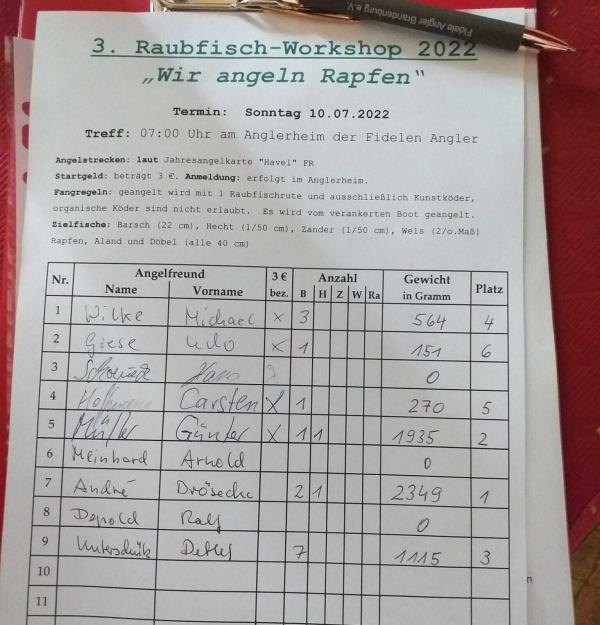 Fidele Angler Brandenburg e.V.
3. Raubfisch-Workshop 2022
„Wir angeln Rapfen"
Termin: Sonntag 10.07.2022
Treff: 07:00 Uhr am Anglerheim der Fidelen Angler
Angelstrecken: laut Jahresangelkarte "Havel" FR
Startgeld: beträgt 3 €. Anmeldung: erfolgt im Anglerheim.
Fangregeln: geangelt wird mit 1 Raubfischrute und ausschließlich Kunstköder,
organische Köder sind nicht erlaubt. Es wird vom verankerten Boot geangelt.
Zielfische: Barsch (22 cm), Hecht (1/50 cm), Zander (1/50 cm), Wels (2/o.Maß)
Rapfen, Aland und Döbel (alle 40 cm)
Nr. Angelfreund 3 € Anzahl Gewicht Platz
Name Vorname bez. B H Z W Ra in Gramm
1 Wilke Michael X 3 564 4
2 Giese Udo X 1 151 6
3 Hans 0
4 Carsten X 1 270 5
5 Müller Günter X 1 1 1935 2
6 Meinhard Arnold 0
7 André Dröseche 2 1 2349 1
8 Depold Ralf 0
9 Detlef 7 1115 3
10
11